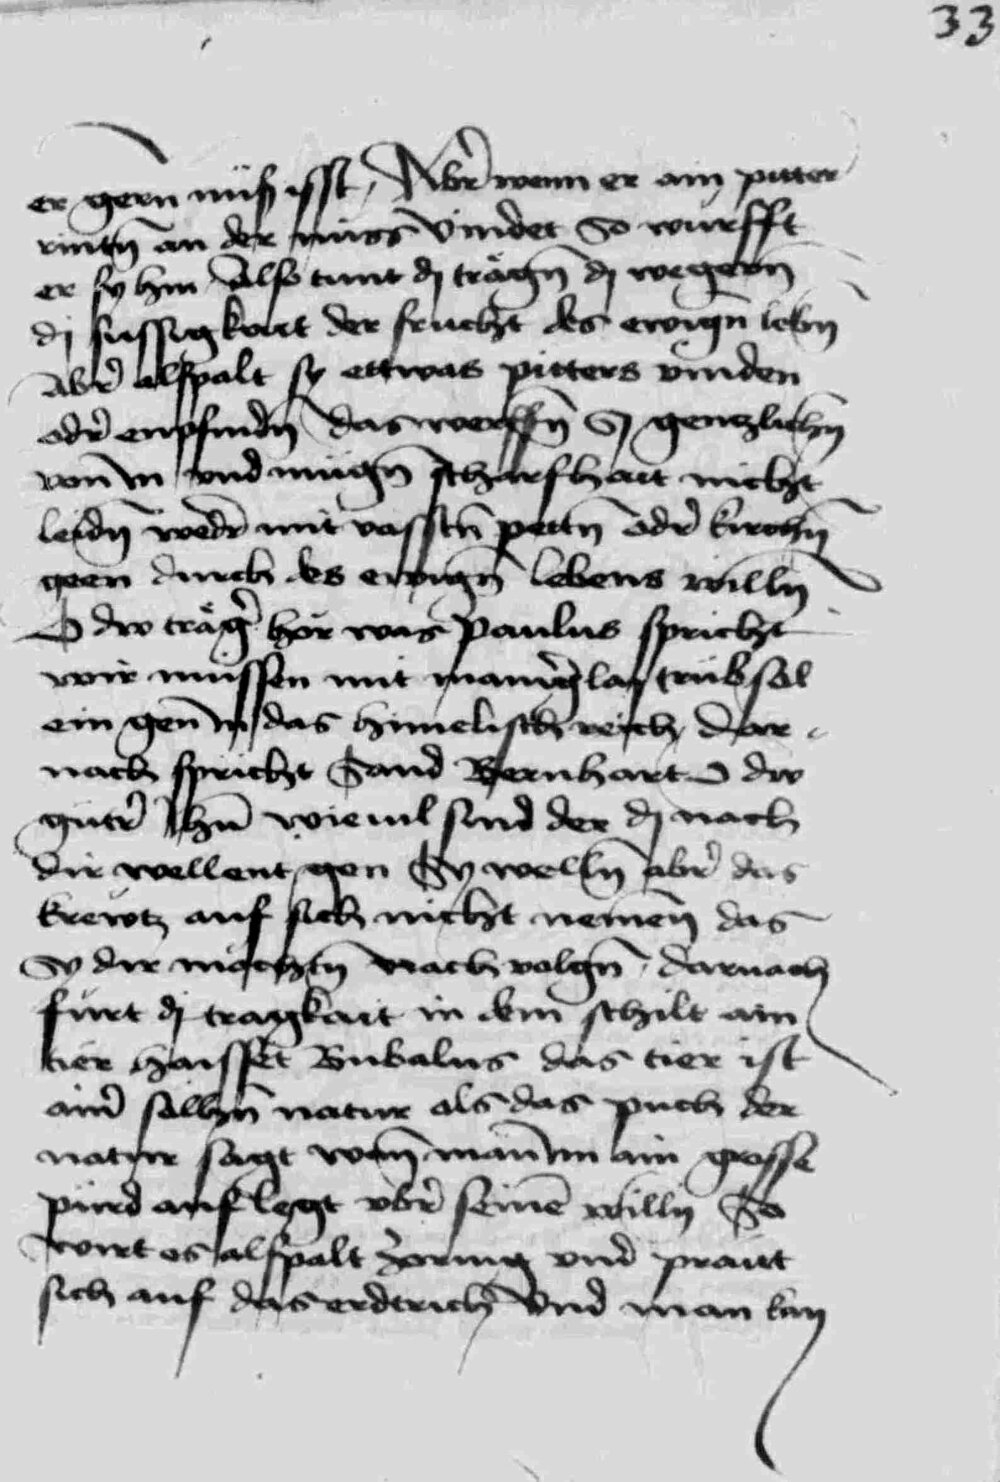 33
er gern nüss isst Aber wenn er ain pitter
rintn̄ an der nüss vindet So würfft
er sy hin Also tunt dj trägn̄ dj wegern
dj süssigkait der frucht des ewign̄ lebn̄
Abr̄ alspalt sy ettwas pitters vinden
odr̄ enpfindn̄ das werffn̄ Sy genczlichn̄
von in vnd mügn̄ scharfhait nicht
leidn̄ wedr̄ mit vasstn̄ petn̄ odr̄ kirchn̄
geen durch des ewign̄ lebens willn̄
O dw träger̄ hör was Paulus spricht
wir müssen mit maniger̄lay trübsal
ein gen̄ in das himelisch reich Dar
nach spricht Sand Bernhart O dw
gütr̄ Ihū wieuil sind der dj nach
dir wellent gen Sy welln̄ abr̄ das
krewtz auf sich nicht nemen̄ das
Sy dir möchtn̄ nach volgn̄ darnach
fürt dj tragkait in dem schilt ain
tier haisset Bubalus das tier ist
ainr̄ sölhn̄ natur als das puch der
natur sagt wen̄ man̄ im ain grosse
pürd auflegt vbr̄ seinē willn̄ So
wirt es alspalt zornig vnd prait
sich auf das erdtrich vnd man kan